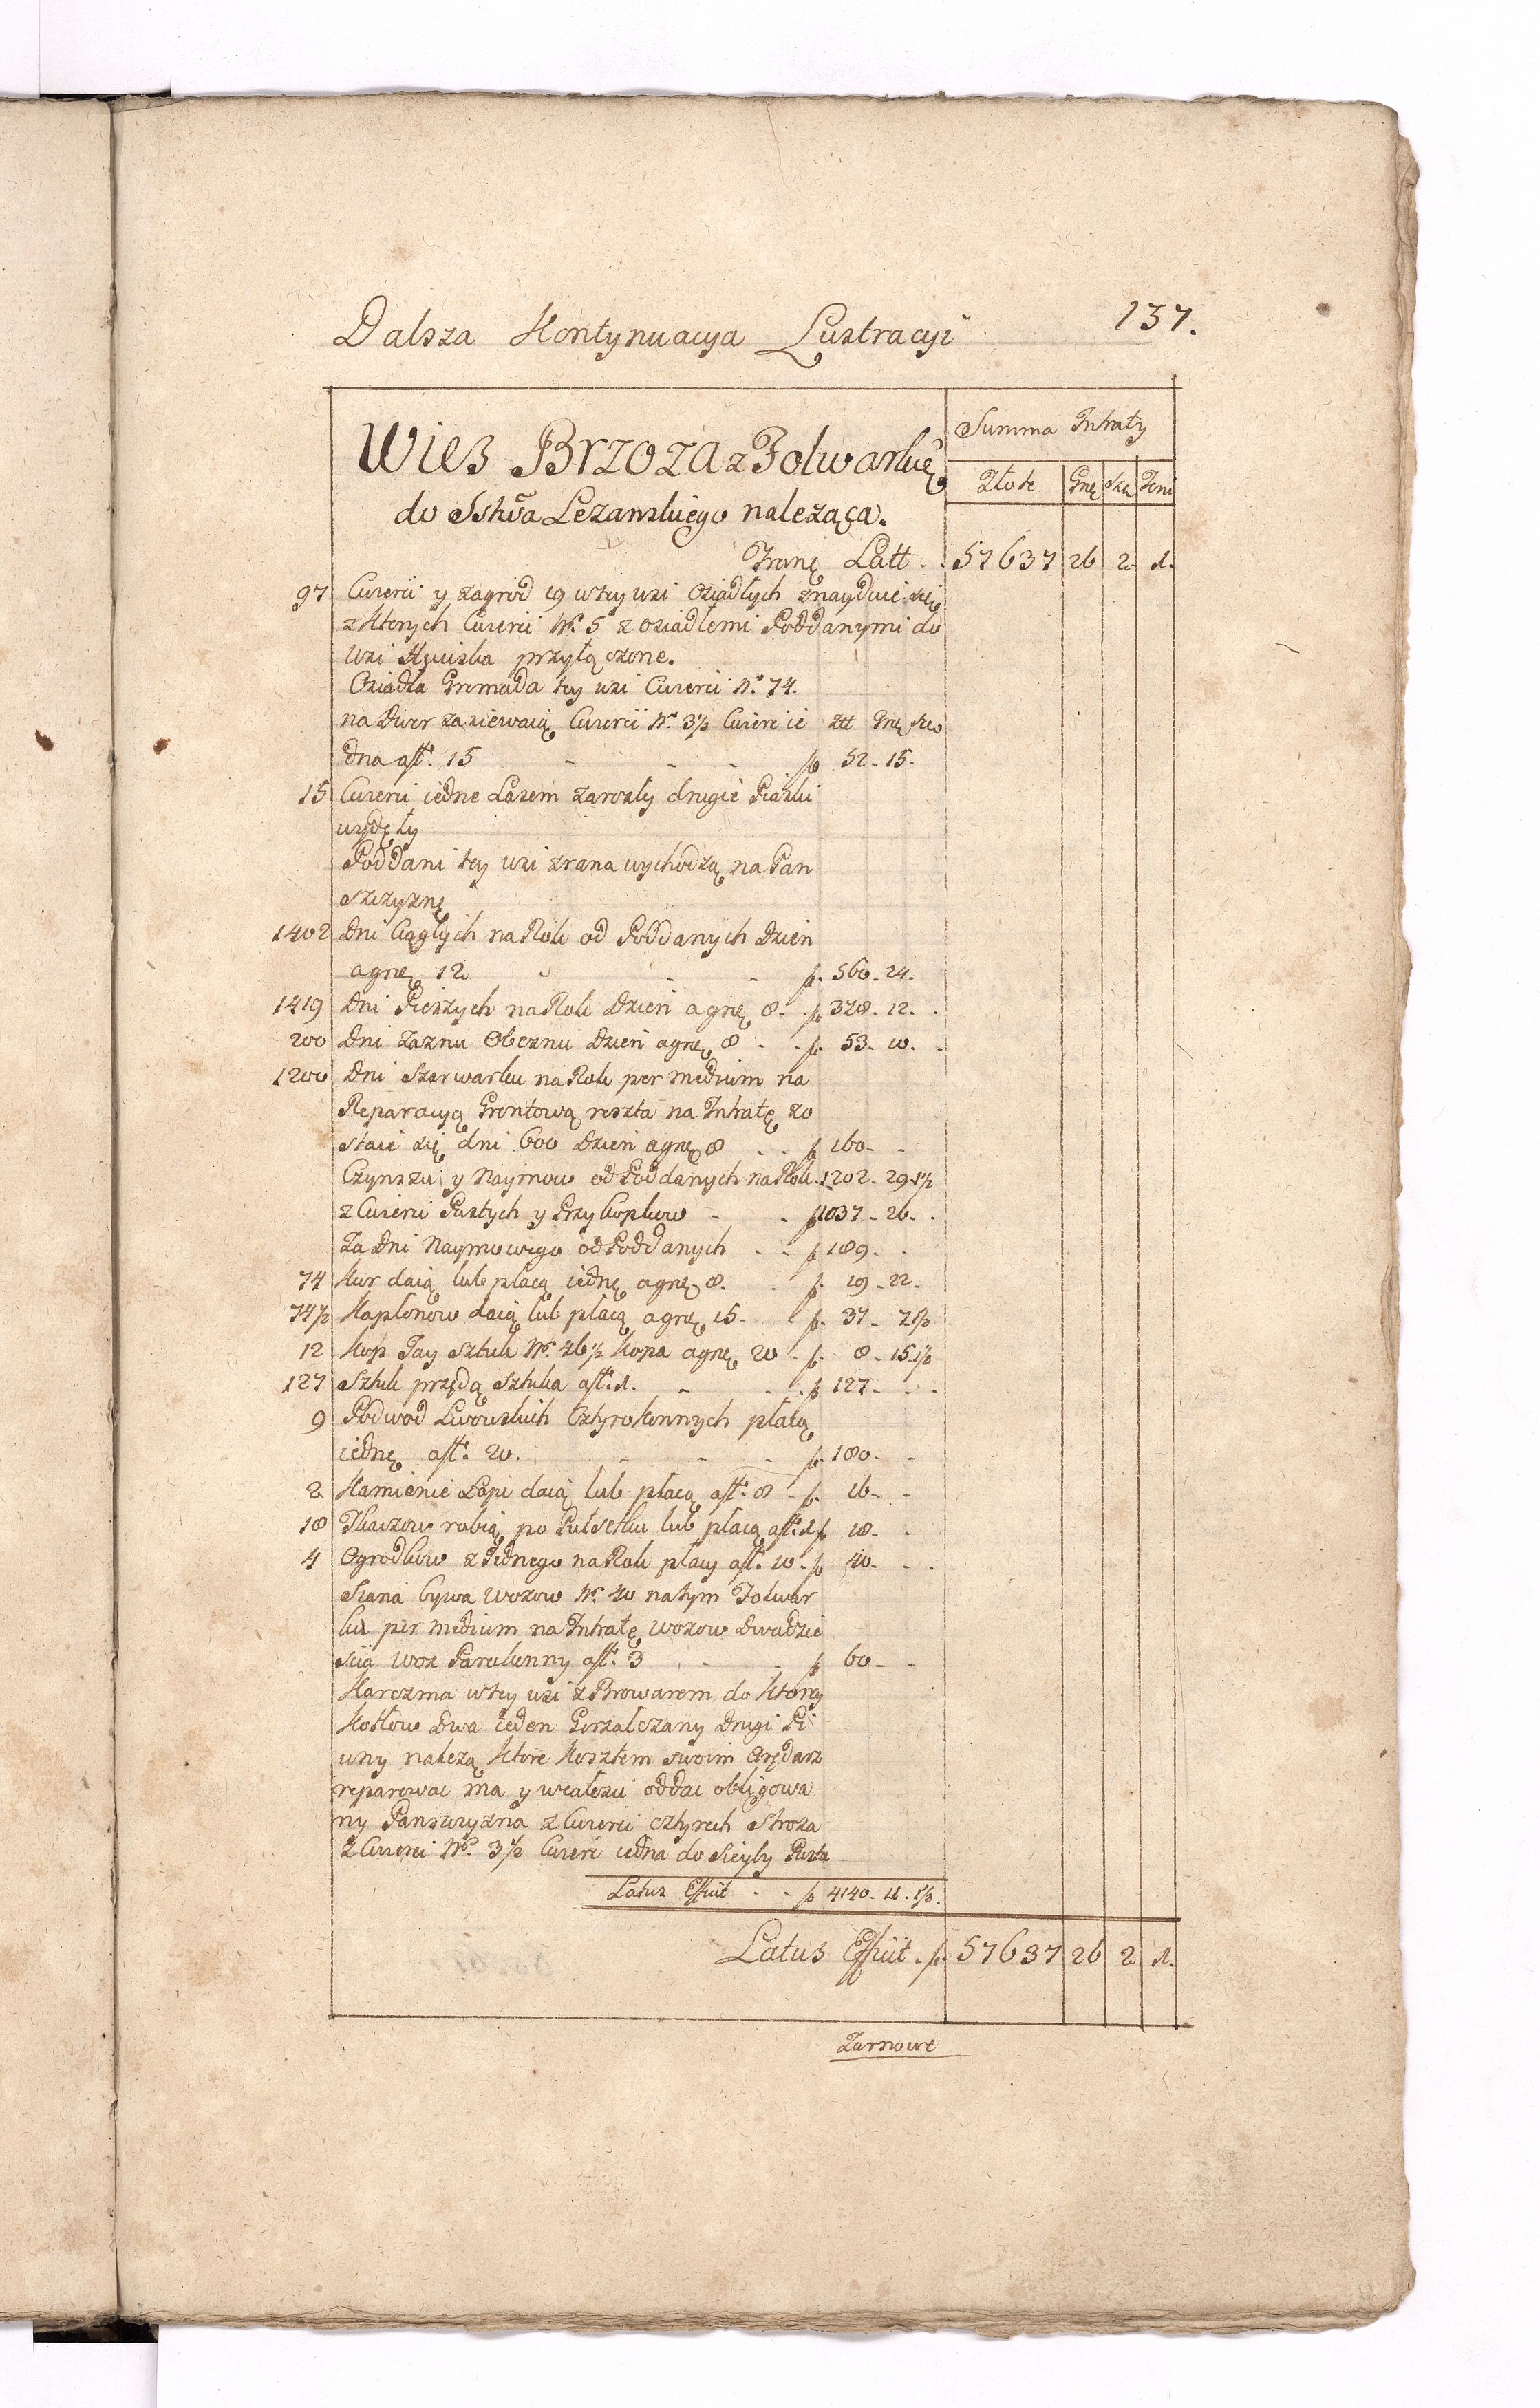 Dalsza Kontynuacya Lustracyi 137.
Summa Intraty
Wies Brzoza z Folwarkiē
Złote Grę Sze Deni
do Sstwa Lezanskiego naleząca.
Tranę Latt . . 57637 26 2 1.
97 Cwierci y zagrod 19 w tey wsi Osiadłych znayduie się
z ktorych Cwierci No 5 z osiadłemi Poddanymi do
wsi przyłączone.
Osiadła Gromada tey wsi Cwierci No 74.
na Dwor zasiewaią Cwierci No 3 1/2 Cwierc ie ztt Grę Sze
dna a ff. 15 - - - f 52 - 15 -
15 Cwierci iedne Lasem zarosły drugie Piaski
wydęły
Poddani tey wsi z rana wychodzą na Pan
szczyznę
1402 Dni Ciągłych na Rok od Poddanych Dzien
a grę 12 - - f. 560 - 24 -
1419 Dni Pieszych na Rok Dzien a grę 8 - f 378 - 12 -
200 Dni Zaznu Obeznu Dzien a grę 8 - - f. 53 - 10 -
1200 Dni Szarwarku na Rok per medium na
Reparacyą Grontową reszta na Intratę zo
staie się dni 600 Dzien a grę 8 - - f 160 - -
Czynszu y Naymow od Poddanych na Rok 1202 - 29 1 1/2
z Cwierci Pustych y Przykopkow - - f 1037 - 26 -
Za Dni Naymowego od Poddanych - - f 189 - -
74 Kur daią lub płacą iednę a grę 8. - f. 19 - 22 -
74 1/2 Kapłonow daią lub płacą a grę 15 - f. 37 - 7 1 1/2
12 Kop Jay sztuk No 46 1/2 Kopa a grę 20 - f. 8 - 15 1 1/2
127 Sztuk przędą Sztuka a ff. 1. - - f 127 - -
9 Podwod Lwowskich Cztyrokonnych płacą
iednę a ff. 20. - - - f. 180 - -
2 Kamienie Łoju daią lub płacą a ff. 8 - f. 16 - -
18 Tkaczow robią po Połsetku lub płacą a ff. 1 f 18 - -
4 Ogrodkow z Iednego na Rok płacy a ff. 10 - f 40 - -
Siana bywa wozow No 40 na tym Folwar
ku per medium na Intratę wozow Dwadzie
scia woz Parokonny a ff. 3 - - f 60 - -
Karczma w tey wsi z Browarem do ktorey
Kotłow Dwa ieden Gorzałczany Drugi Pi
wny nalezą ktore kosztem swoim Arędarz
reparowac ma y wcałosci oddac obligowa
ny Panszczyzna z Cwierci cztyrech stroza
z Cwierci No 3 1/2 Cwierc iedna do Pusta
Latus Efficit - - f 4140 - 12 - 1/2.
Latus Efficit . f. 57637 26 2 1.
Zarnowe